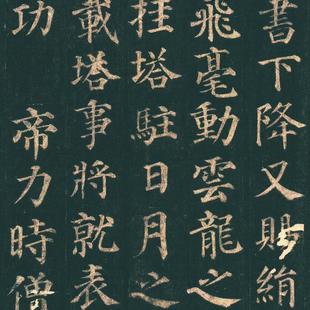 書下降又賜絹
飛毫動雲龍之
挂塔駐日月之
載塔事將就表
功帝力時僧